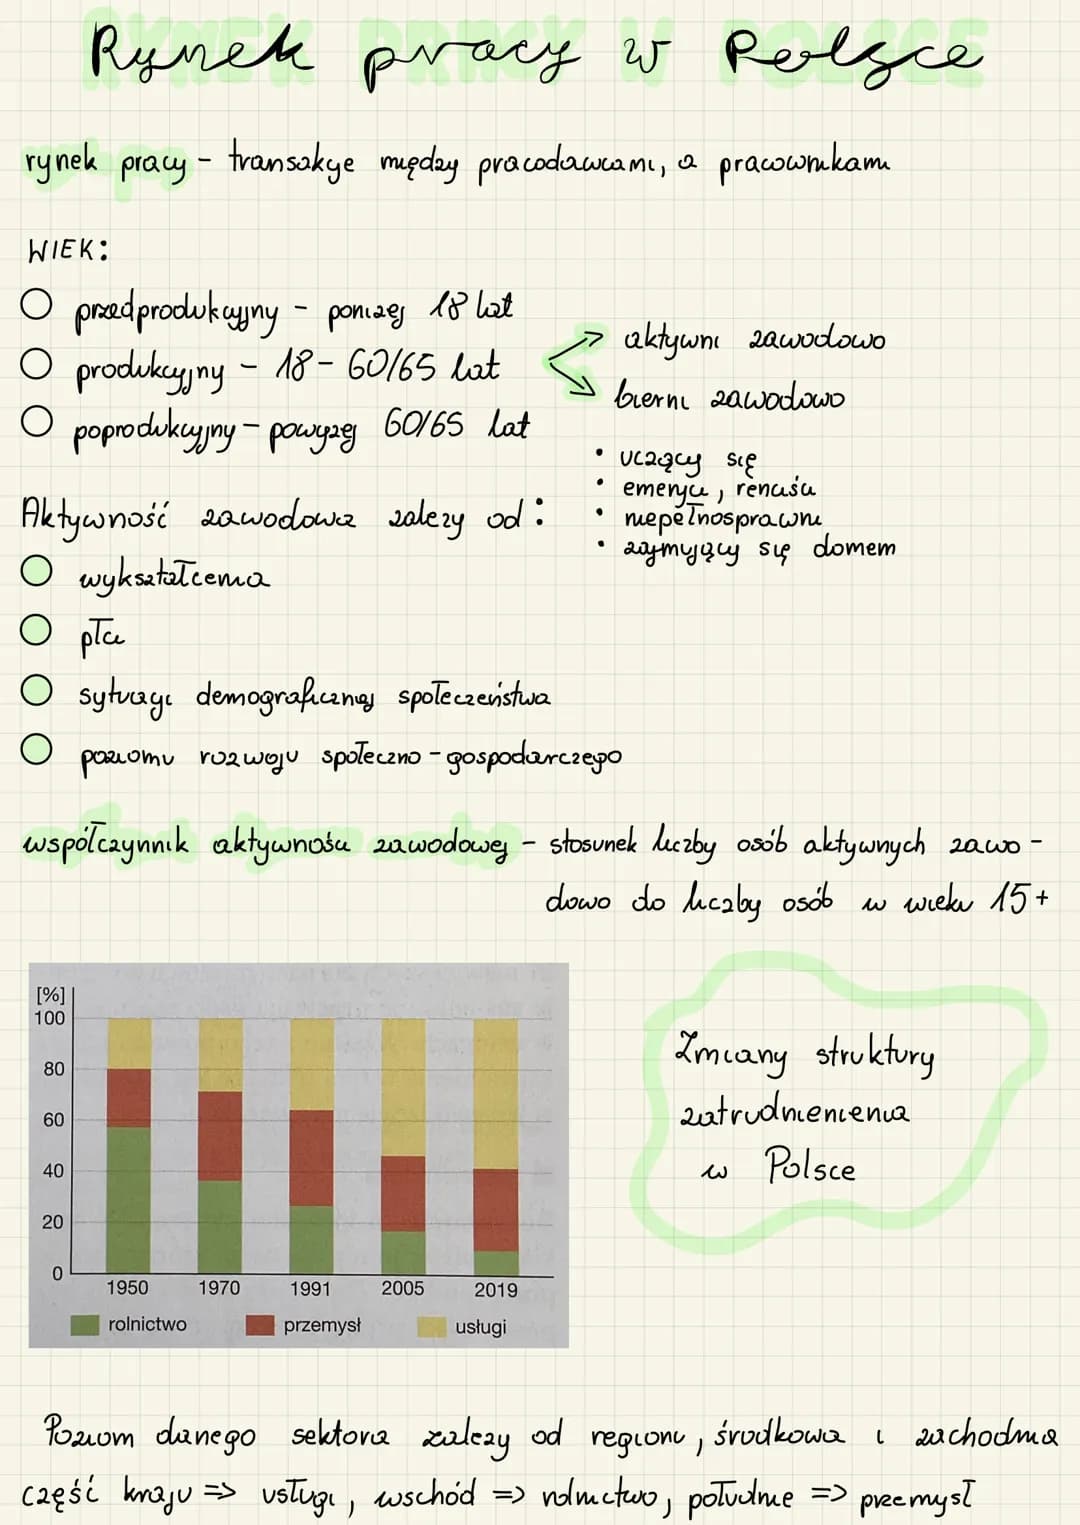 Rynek pracy w Polsce
rynek pracy - transakcje między pracodawcami, a pracownikami
WIEK:
przedprodukcyjny - poniżej 18 lat
produkcyjny - 18 - 60/65 lat
aktywni zawodowo
bierni zawodowo
poprodukcyjny - powyżej 60/65 lat
• uczący się
• emeryci, renciści
• niepełnosprawni
• zajmujący się domem
Aktywność zawodowa zależy od:
wykształcenia
płci
sytuacji demograficznej społeczeństwa
poziomu rozwoju społeczno - gospodarczego
współczynnik aktywności zawodowej - stosunek liczby osób aktywnych zawo -
dowo do liczby osób w wieku 15+
[%]
100
80
60
40
20
0
1950 1970 1991 2005 2019
rolnictwo przemysł usługi
Zmiany struktury
zatrudnienienia
w Polsce
Poziom danego sektora zależy od regionu, środkowa i zachodnia
część kraju => usługi, wschód => rolnictwo, południe => przemysł